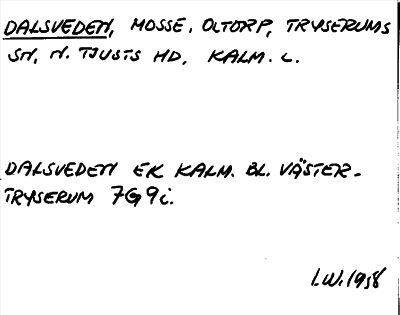 DALSVEDEN, MOSSE. OLTORP, TRYSERUMS
SN, N. TJUSTS HD, KALM. L.
DALSVEDEN EK KALM. BL. VÄSTER-
TRYSERUM 7G9i.
I.W. 1958